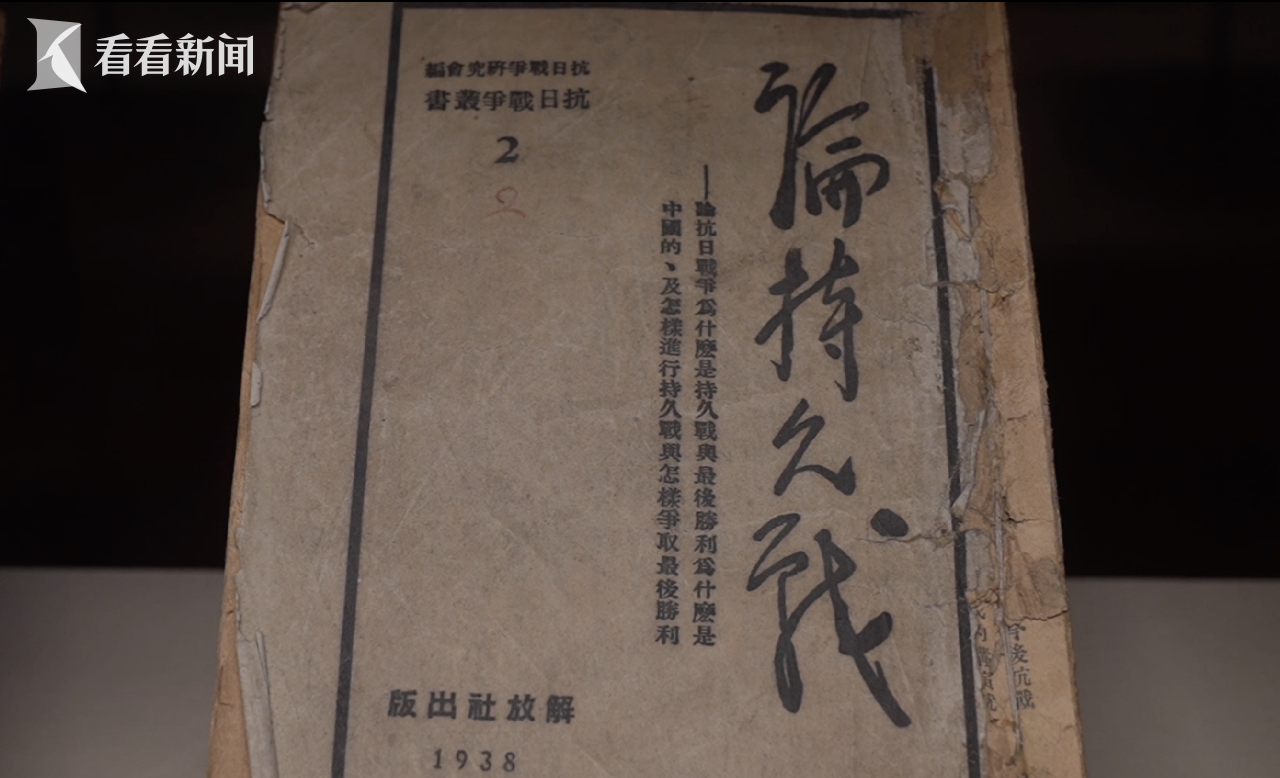 看看新闻
論持久戰
——論抗日戰爭爲什麽是持久戰與最後勝利爲什麽是
中國的、及怎樣進行持久戰與怎樣爭取最後勝利
抗日戰爭硏究會編
抗日戰爭叢書
2
解放社出版
1938
後抗戰